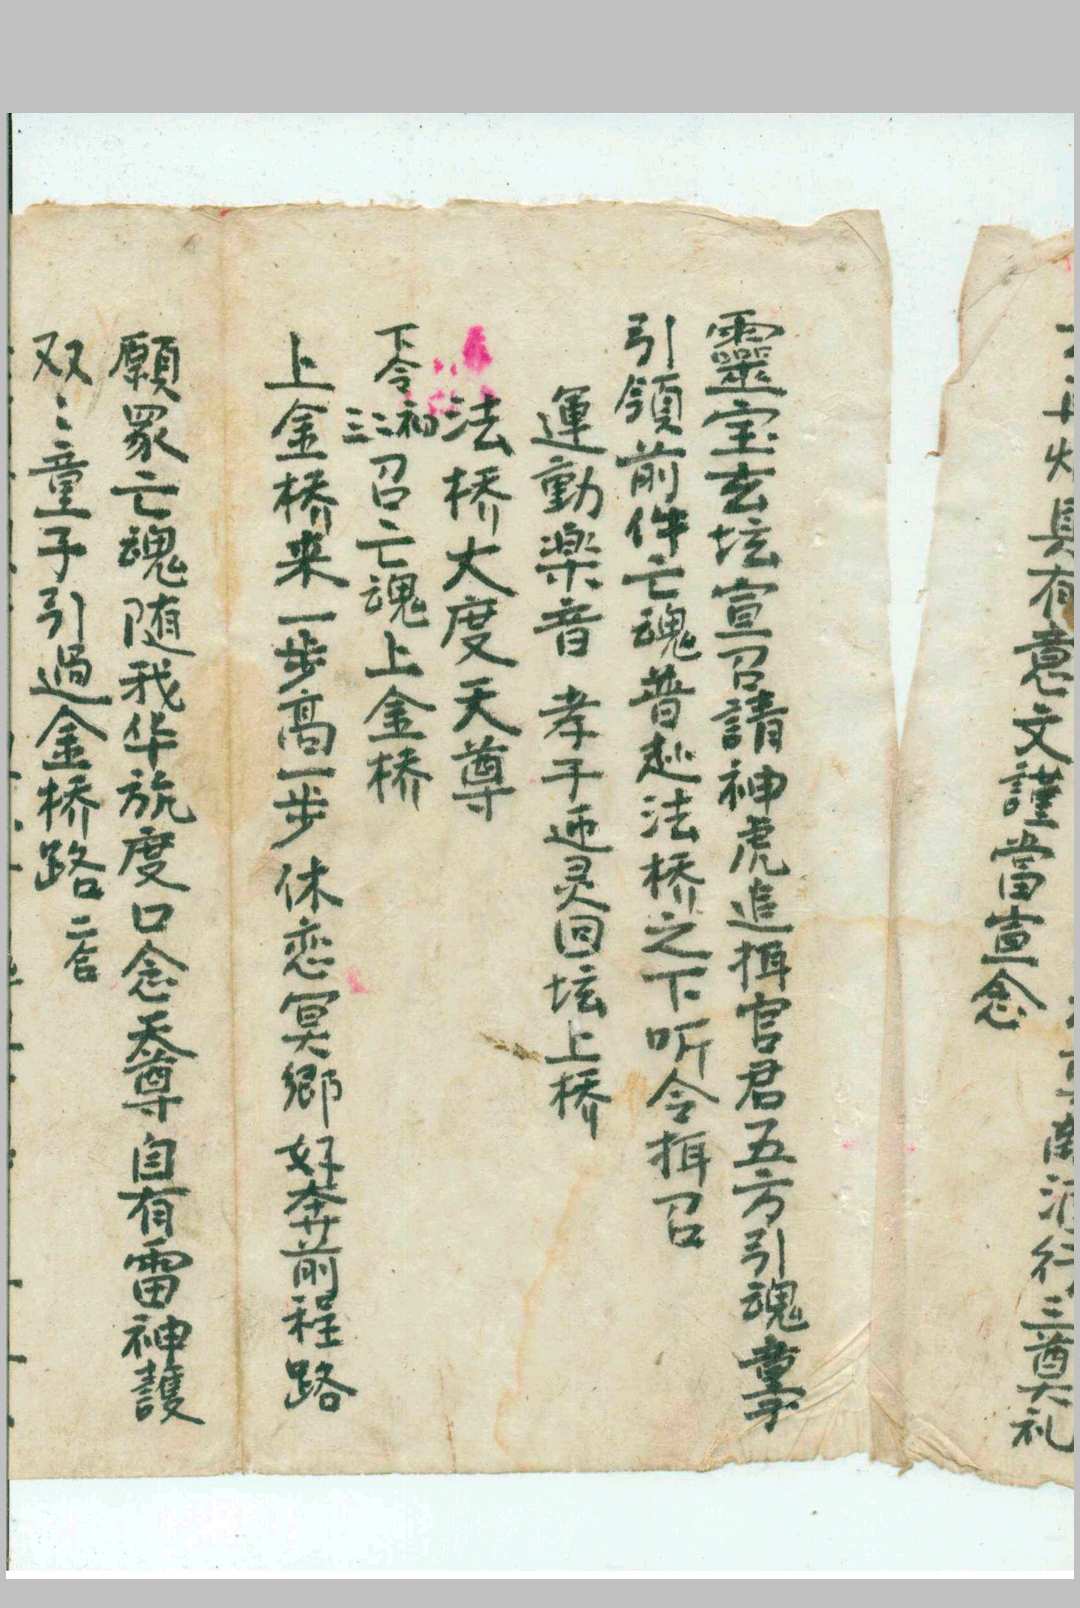 具有意文謹當宣念
行三酋大礼
靈宝玄坛宣召請神虎追揖官君五方引魂童子
引領前件亡魂普赴法桥之下听令揖召
運動楽音 孝子逓灵回坛上桥
法桥大度天尊
下令初二三召亡魂上金桥
上金桥来一步高一步休恋冥鄉好奔前程路
願眾亡魂随我华旈度口念天尊自有雷神護
双〻童子引過金桥路 二合